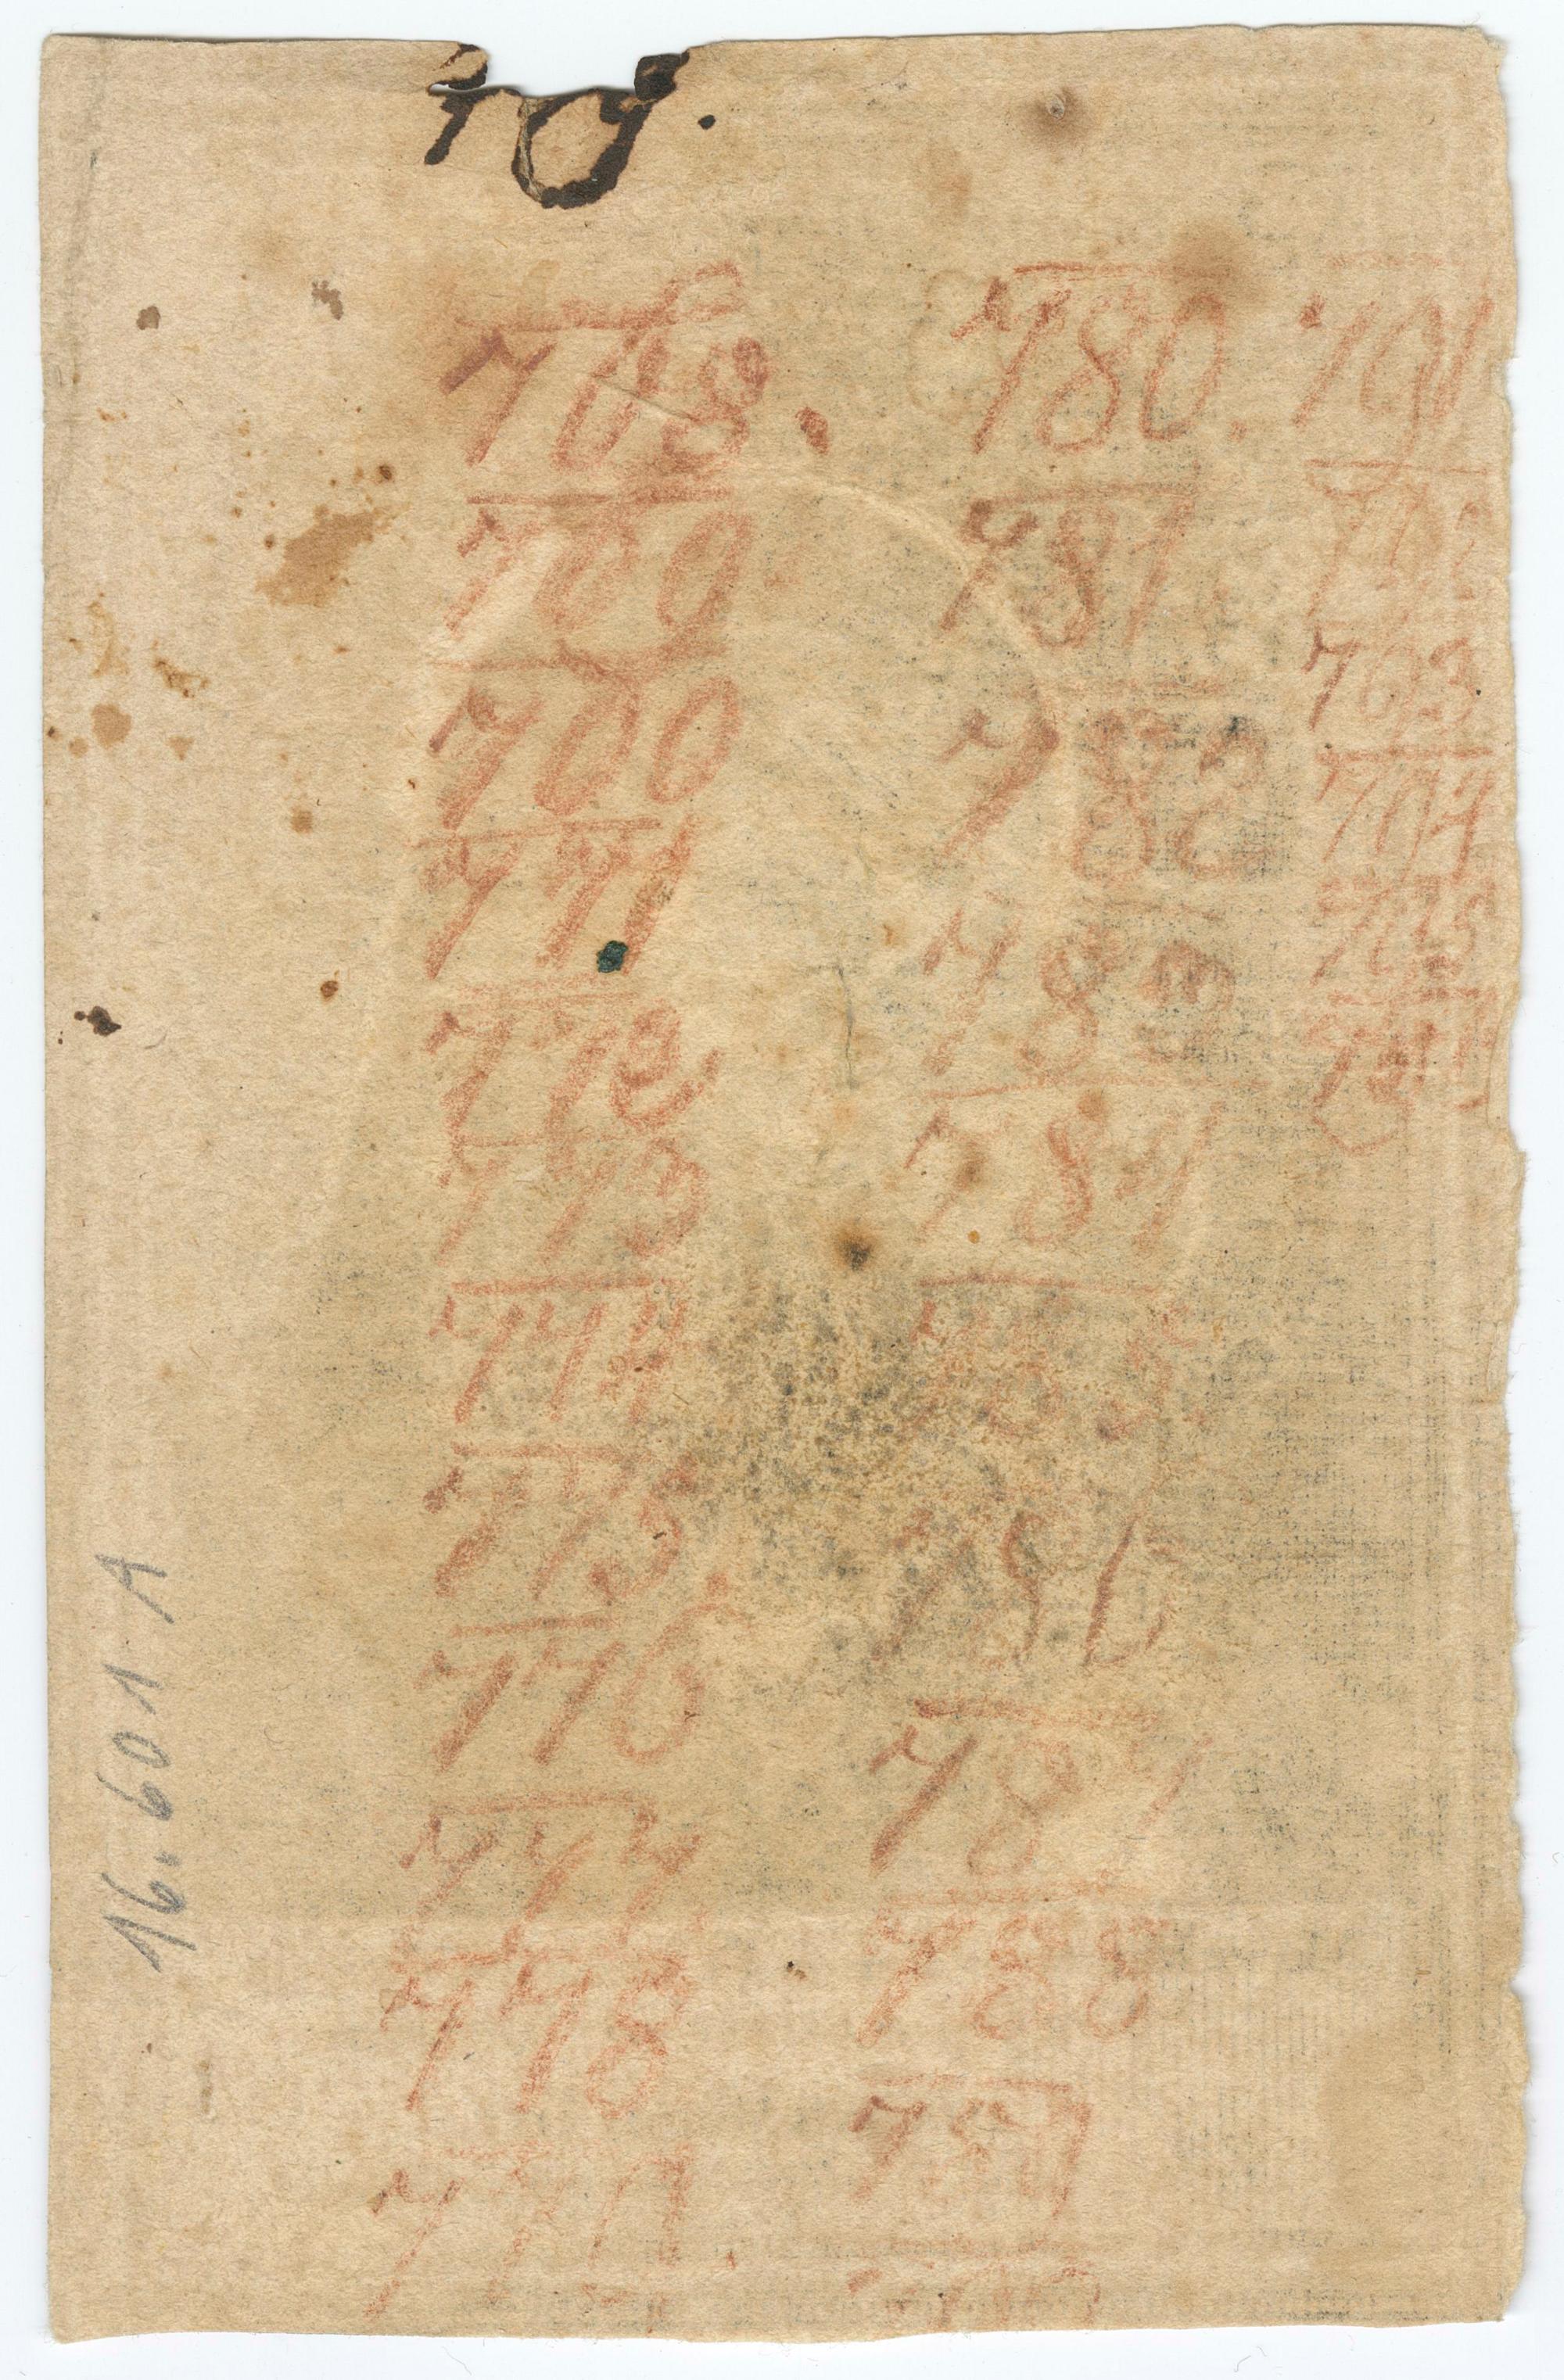 79.
768.
769
700
771
772.
773
774
775.
776
777
778
779
780.
781
782
783
784
785
786
787
788
789
791
793
794
795
16.601-A